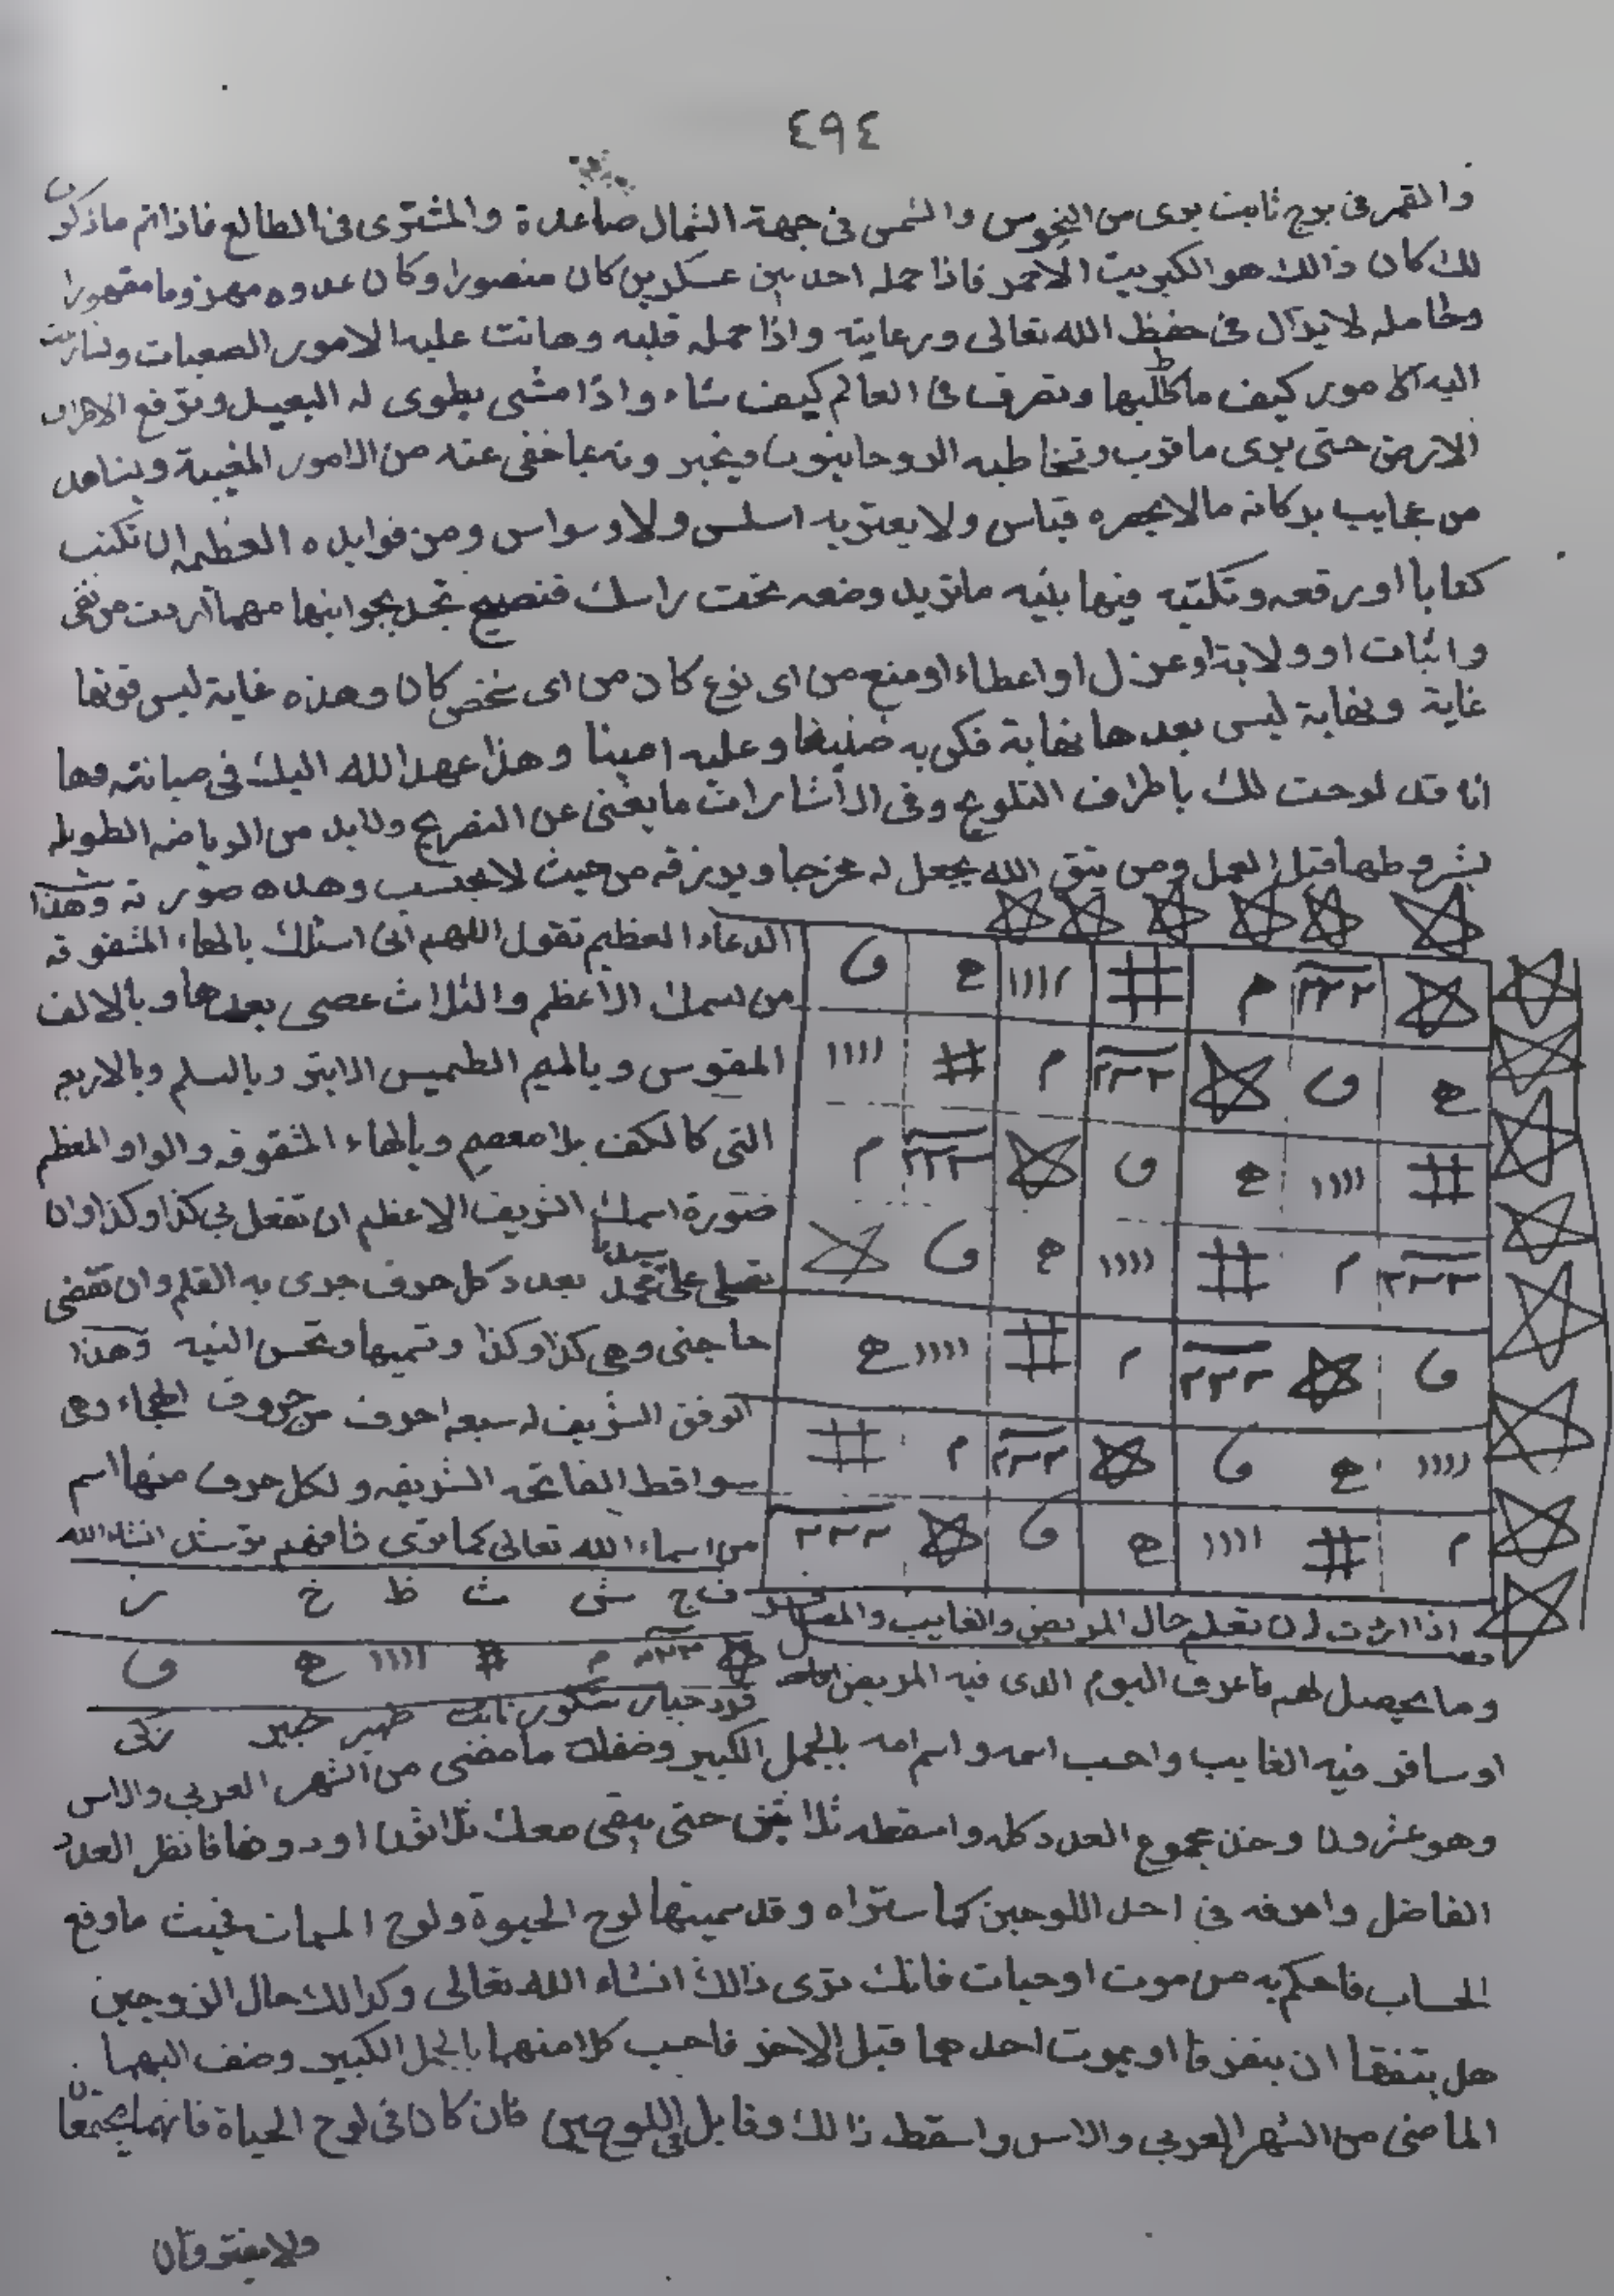 ٤٩٤
والقمر فى برج ثابت برى من النحوس والشمس فى جهة الشمال صاعدة والمشترى فى الطالع فاذا تم ما ذكرن
لك كان ذالك هو الكبريت الاحمر فاذا حمله احد بين عسكرين كان منصورا وكان عدوه مهزوما مقهورا
وحامله لا يزال فى حفظ الله تعالى ورعايته واذا حمله قلبه وهانت عليه الامور الصعبات
اليه الامور كيف ما طلبها وتصرف فى العالم كيف شاء واذا مشى يطوى له البعيد وترفع
الارض حتى يرى ما قرب وتخاطبه الروحانيون ويخبرونه عما خفى عنه من الامور المغيبة ويشاهد
من عجايب بركاته ما لا يحصره قياس ولا يعتريه ولا وسواس ومن فوايده العظيمه ان تكتب
كتابا او رقعه وتكتبه فيها بنيه ما تريد وضعه تحت راسك فتصبح تجد بجوابنها مهما اردت من نفى
واثبات او ولاية او عزل او اعطاء او منع من اى نوع كان من اى شخص كان وهذه غاية ليس فوقها
غاية ونهاية ليس بعدها نهاية فكن به ضنينا وعليه امينا وهذا عهد الله اليك فى صيانته وها
انا قد لوحت لك باطراف التلويح وفى الاشارات ما يغنى عن التصريح ولابد من الرياضه الطويله
بشروطها قبل العمل ومن يتق الله يجعل له مخرجا ويرزقه من حيث لا يحتسب وهذه صورته وهذا
الدعاء العظيم تقول اللهم انى اسئلك بالهاء المشقوقه
من اسمك الاعظم والثلاث عصى بعدها وبالالف
المقوس وبالميم الطميس الابتر وبالسلم وبالاربعه
التى كالكف بلا معصم وبالهاء المشقوقه والواو المعظم
صورة اسمك الشريف الاعظم ان تفعل بى كذا وكذا وان
تصلى على سيدنا محمد بعدد كل حرف جرى به القلم وان تقضى
حاجتى وهى كذا وكذا وتسميها وتحسن النيه وهذا
الوفق الشريف له سبعه احرف من حروف الهجاء وهى
سواقط الفاتحه الشريفه ولكل حرف منها اسم
من اسماء الله تعالى كما ترى فافهم ترشد انشاء الله
ف ج ش ث ظ خ ز
م # ١١١١ ھ و
فرد جبار شكور ثابت ظهير خبير زكى
اذا اردت ان تعلم حال المريض والغايب والمسافر
وما يحصل لهم فاعرف اليوم الذى فيه المريض
او سافر فيه الغايب واحسب اسمه واسم امه بالجمل الكبير وضف لك ما مضى من الشهر العربى والاس
وهو عشرون وخذ مجموع العدد كله واسقطه ثلاثين حتى يبقى معك ثلاثون او دونها فانظر العدد
الفاضل واعرفه فى احد اللوحين كما ستراه وقد سميتها لوح الحيوة ولوح الممات فحيث ما وقع
الحساب فاحكم به من موت او حيات فانك ترى ذالك انشاء الله تعالى وكذالك حال الزوجين
هل يتفقا ان يتفرقا او يموت احدهما قبل الاخر فاحسب كلا منهما بالجمل الكبير وضف اليهما
الماضى من الشهر العربى والاس واسقطه ذالك وقابل فى اللوحين فان كان فى لوح الحياة فانهما يجتمعان
ولا يفترقان